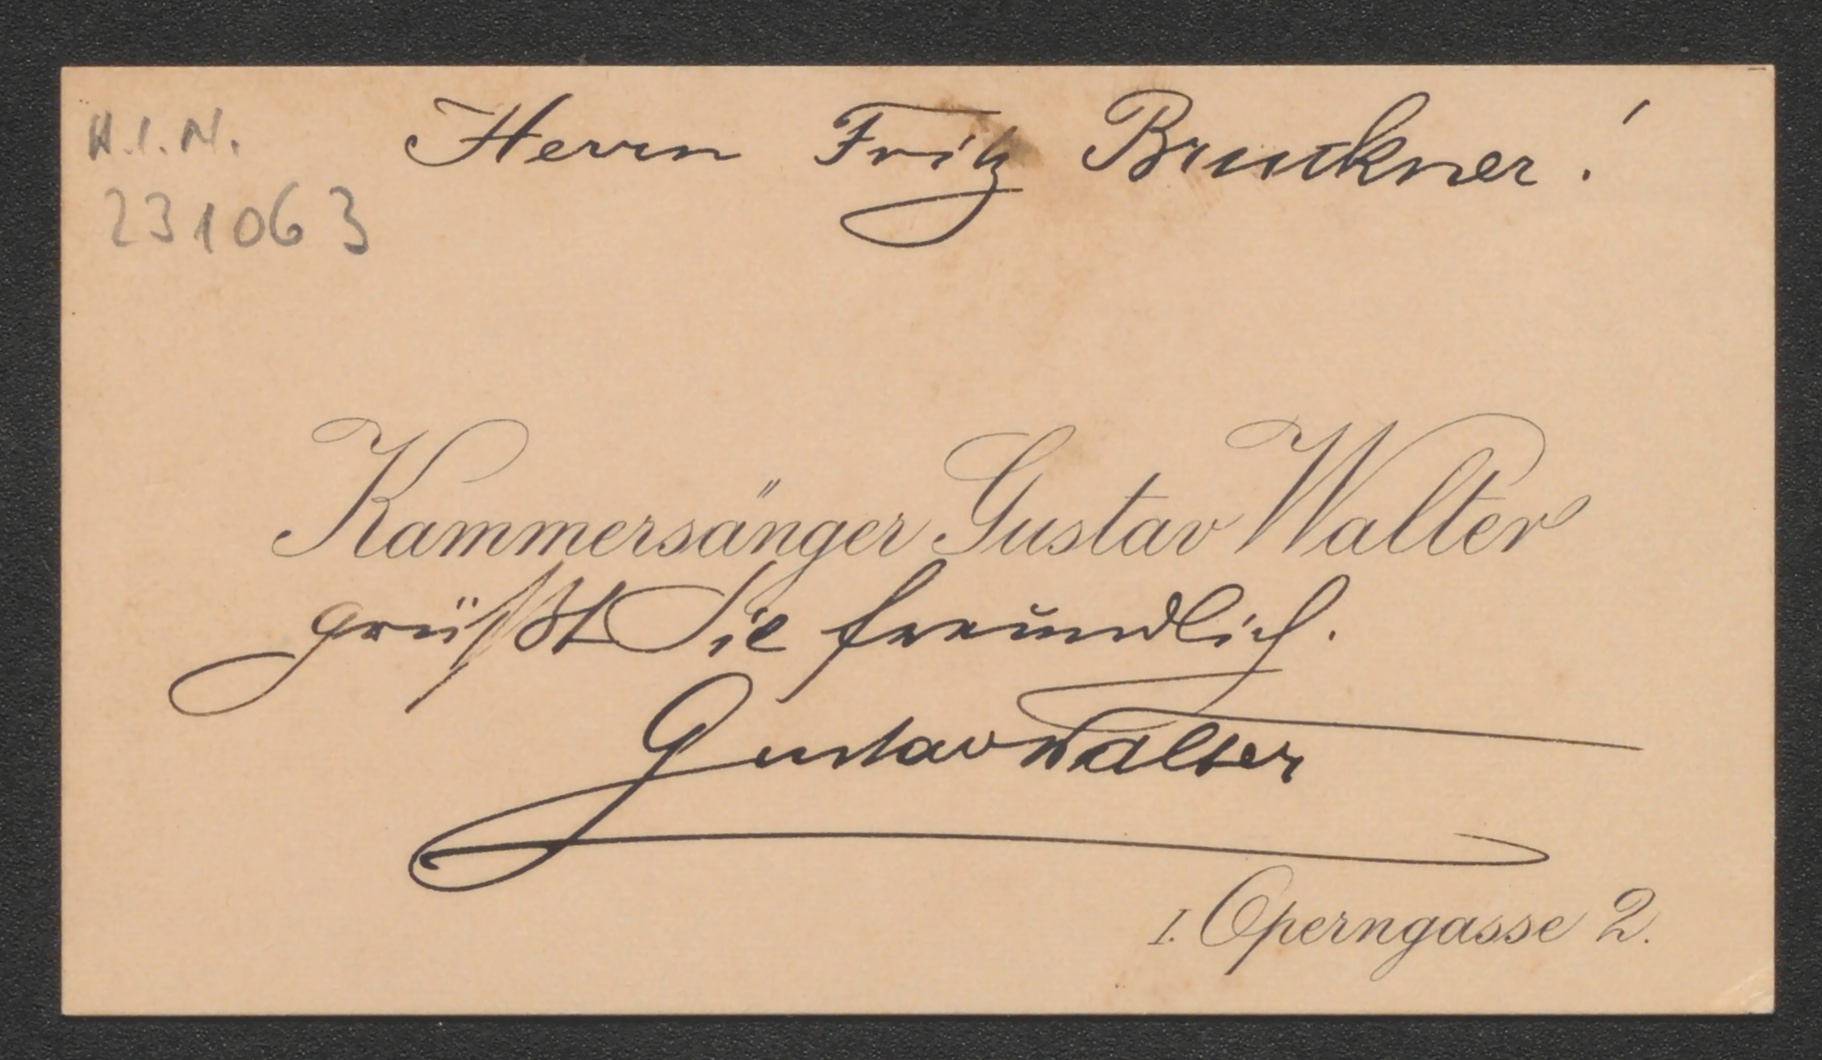 H.I.N.
231063
Herrn Fritz Bruckner!
Kammersänger Gustav Walter
grüßt Sie freundlich.
Gustav Walter
I. Operngasse 2.